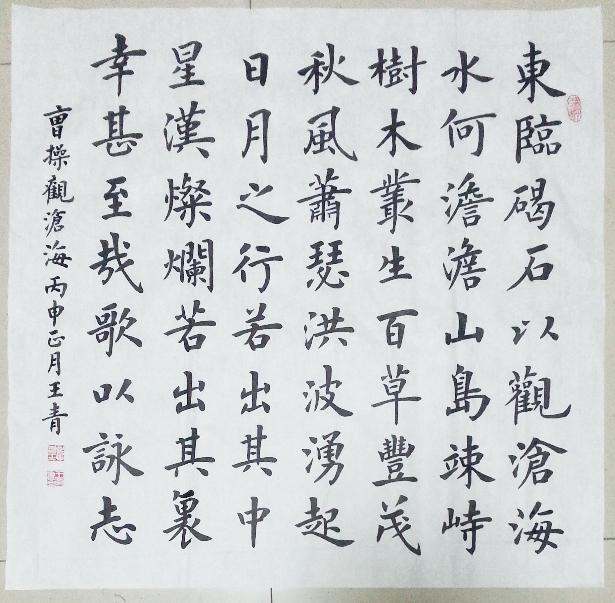 東臨碣石以觀滄海
水何澹澹山島竦峙
樹木叢生百草豐茂
秋風蕭瑟洪波湧起
日月之行若出其中
星漢燦爛若出其裏
幸甚至哉歌以詠志
曹操觀滄海丙申正月王青